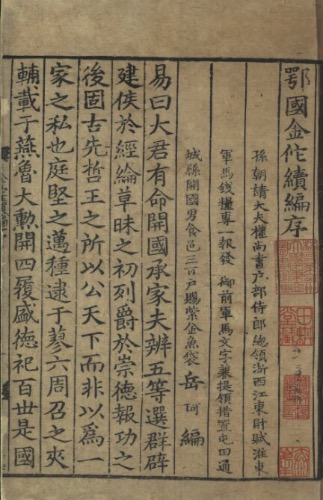 鄂國金佗續編序
孫朝請大夫權尚書戶部侍郎總領浙西江東財賦淮東
軍馬錢糧專一報發　御前軍馬文字兼提領措置屯田通
城縣開國男食邑三百戶賜紫金魚袋岳珂編
易曰大君有命開國承家夫辨五等選群辟
建侯於經綸草昧之初列爵於崇德報功之
後固古先哲王之所以公天下而非以為一
家之私也庭堅之邁種逮于蓼六周召之夾
輔載于燕魯大勳開四履盛德祀百世是國